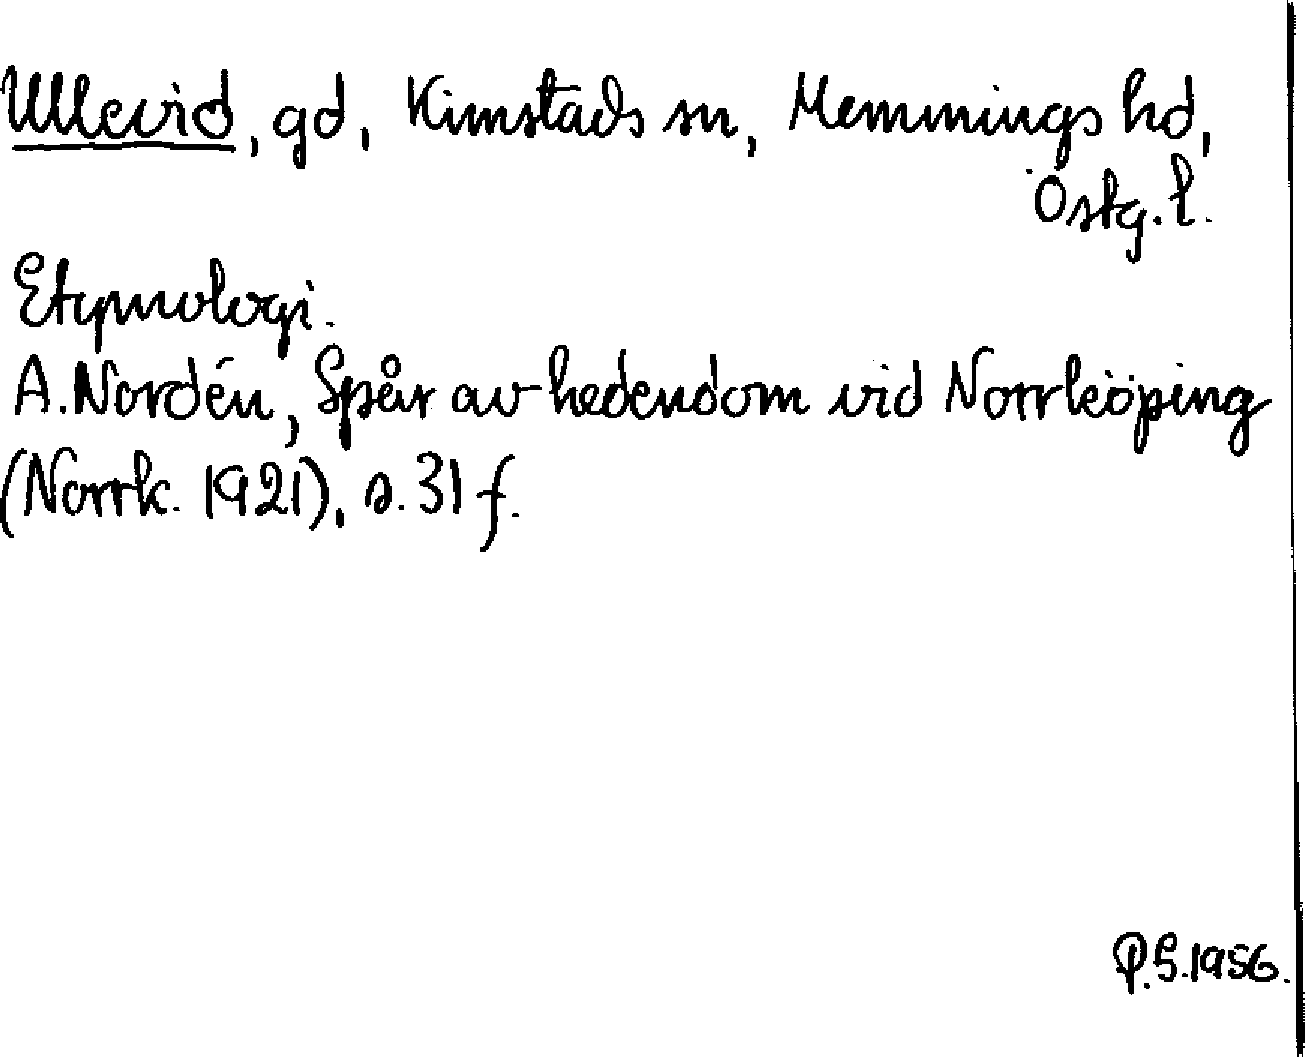 Ullevid, gd, Kimstads sn, Memmings hd,
Östg. l.
Etymologi.
A. Nordén, Spår av hedendom vid Norrköping
(Norrk. 1921), s. 31 f.
P.S. 1956.